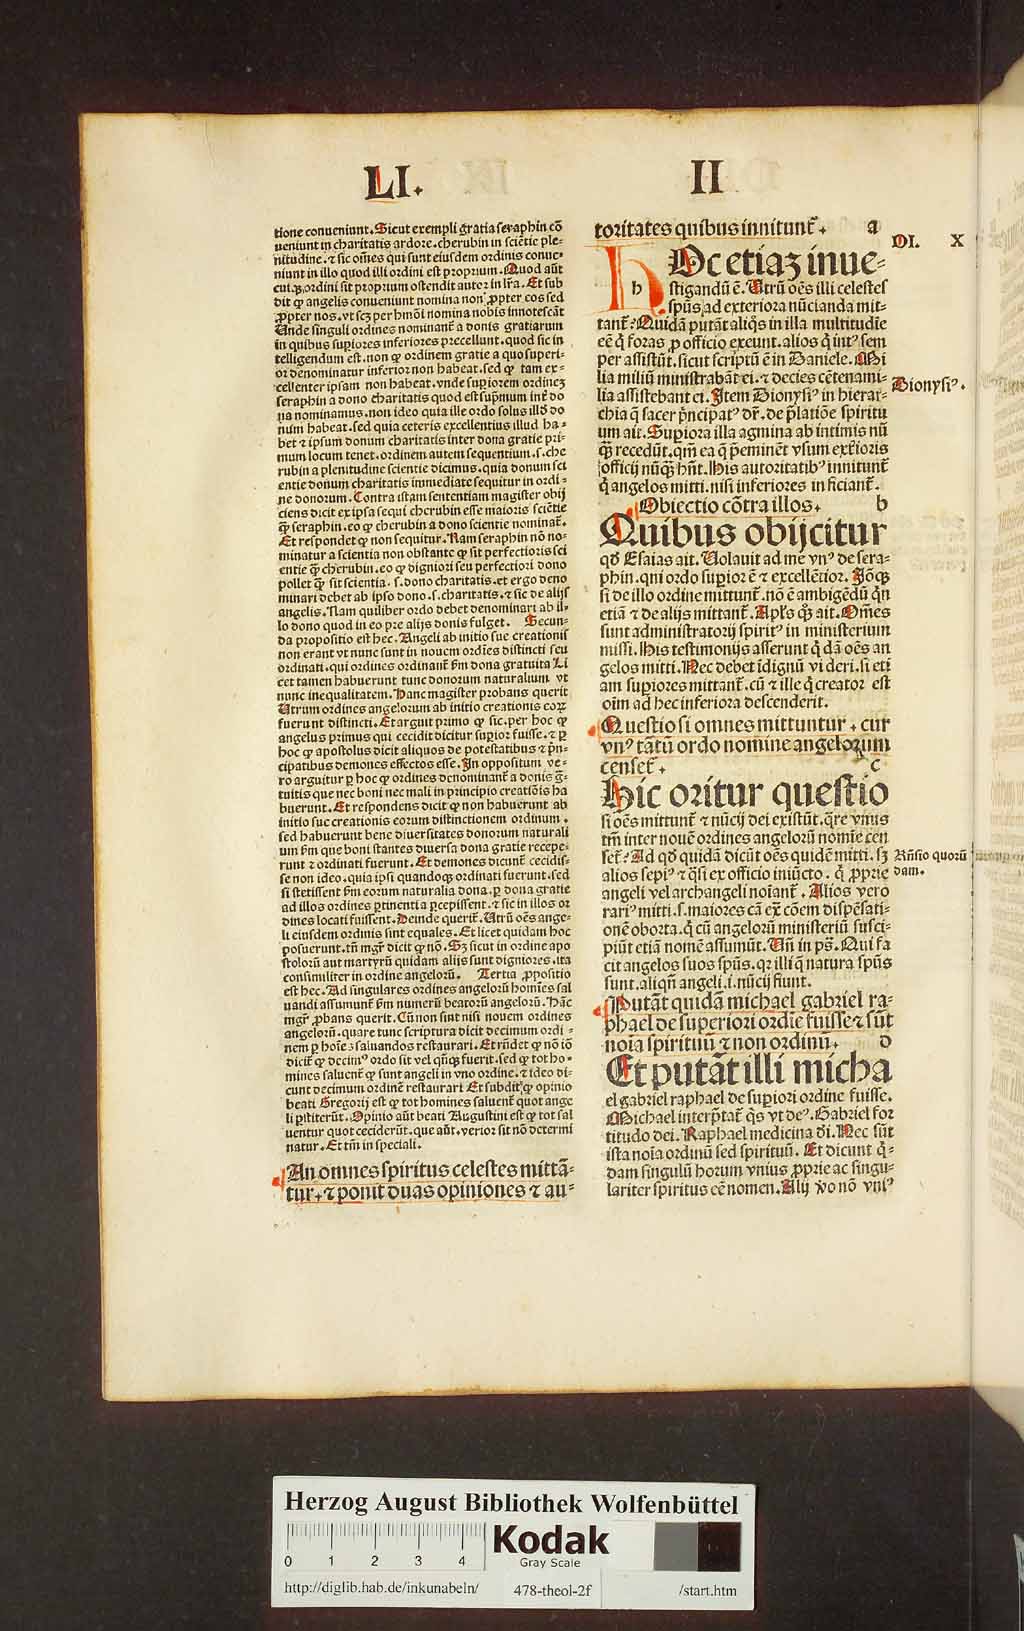 LI.
II
tione conueniunt. Sicut exempli gratia seraphin cō
ueniunt in charitatis ardore. cherubin in sciētie ple-
nitudine. ⁊ sic om̄es qui sunt eiusdem ordinis conue-
niunt in illo quod illi ordini est proprium. Quod aūt
cuiꝗ ordini sit proprium ostendit autor in lr̄a. Et sub
dit ꝙ angelis conueniunt nomina non ꝓpter eos sed
ꝓpter nos. vt scꝫ per hmōi nomina nobis innotescāt
Unde singuli ordines nominant̄ a donis gratiarum
in quibus suꝑiores inferiores precellunt. quod sic in
telligendum est. non ꝙ ordinem gratie a quo superi-
or denominatur inferior non habeat. sed ꝙ tam ex-
cellenter ipsam non habeat. vnde suꝑiorem ordineꝫ
seraphin a dono charitatis quod est sup̄mum int̄ do
na nominamus. non ideo quia ille ordo solus illd̄ do
num habeat. sed quia ceteris excellentius illud ha-
bet ⁊ ipsum donum charitatis inter dona gratie pri-
mum locum tenet. ordinem autem sequentium .s. che
rubin a plenitudine scientie dicimus. quia donum sci
entie donum charitatis immediate sequitur in ordi-
ne donorum. Contra istam sententiam magister obij
ciens dicit ex ipsa sequi cherubin esse maioris sciētie
ꝙ̄ seraphin. eo ꝙ cherubin a dono scientie nominat̄.
Et respondet ꝙ non sequitur. Nam seraphin nō no-
minatur a scientia non obstante ꝙ sit perfectioris sci
entie ꝙ̄ cherubin. eo ꝙ digniori seu perfectiori dono
pollet ꝙ̄ sit scientia .s. dono charitatis. et ergo deno
minari debet ab ipso dono .s. charitatis. ⁊ sic de alijs
angelis. Nam quilibet ordo debet denominari ab il-
lo dono quod in eo pre alijs donis fulget. Secun-
da propositio est hec. Angeli ab initio sue creationis
non erant vt nunc sunt in nouem ordīes distincti seu
ordinati. qui ordines ordinant̄ ẜm dona gratuita Li
cet tamen habuerunt tunc donorum naturalium vt
nunc inequalitatem. Hanc magister probans querit
Utrum ordines angelorum ab initio creationis eoꝝ
fuerunt distincti. Et arguit primo ꝙ sic. per hoc ꝙ
angelus primus qui cecidit dicitur suꝑior fuisse. ⁊ ꝑ
hoc ꝙ apostolus dicit aliquos de potestatibus ⁊ p̄n-
cipatibus demones effectos esse. In oppositum ve-
ro arguitur ꝑ hoc ꝙ ordines denominant̄ a donis ḡ-
tuitis que nec boni nec mali in principio creatiōis ha
buerunt. Et respondens dicit ꝙ non habuerunt ab
initio sue creationis eorum distinctionem ordinum.
sed habuerunt bene diuersitates donorum naturali
um ẜm que boni stantes diuersa dona gratie recepe-
runt ⁊ ordinati fuerunt. Et demones dicunt̄ cecidis-
se non ideo. quia ipsi quandoꝗ ordinati fuerunt. sed
si stetissent ẜm eorum naturalia dona. ꝑ dona gratie
ad illos ordines ꝑtinentia ꝑcepissent. ⁊ sic in illos or
dines locati fuissent. Deinde querit̄. Utrū oēs ange-
li eiusdem ordinis sint equales. Et licet quidam hoc
posuerunt. tn̄ mgr̄ dicit ꝙ nō. Sꝫ sicut in ordine apo
stolorū aut martyrū quidam alijs sunt digniores. ita
consimiliter in ordine angelorū. Tertia ꝓpositio
est hec. Ad singulares ordines angelorū homīes sal
uandi assumunt̄ ẜm numerū beatorū angelorū. Hāc
mgr̄ ꝓbans querit. Cū non sint nisi nouem ordines
angelorū. quare tunc scriptura dicit decimum ordi-
nem ꝑ hoīes saluandos restaurari. Et rn̄det ꝙ nō iō
dicit̄ ꝙ decimꝰ ordo sit vel qn̄ꝗ fuerit. sed ꝙ tot ho-
mines saluent̄ ꝙ sunt angeli in vno ordine. ⁊ ideo di-
cunt decimum ordinē restaurari Et subdit ꝙ opinio
beati Gregorij est ꝙ tot homines saluent̄ quot ange
li ꝑstiterūt. Opinio aūt beati Augustini est ꝙ tot sal
uentur quot ceciderūt. que aūt. verior sit nō determi
natur. Et tm̄ in speciali.
An omnes spiritus celestes mittā-
tur. ⁊ ponit duas opiniones ⁊ au-
toritates quibus innitunt̄. a
DI. X
h Oc etiaꝫ inue-
stigandū ē. Utrū oēs illi celestes
spūs ad exteriora nūcianda mit-
tant̄? Quidā putāt aliqs in illa multitudīe
eē q̄ foras ꝓ officio exeunt. alios q̄ intꝰ sem
per assistūt. sicut scriptū ē in Daniele. Mi
lia miliū ministrabāt ei. ⁊ decies cētenami-
lia assistebant ei. Item Dionysiꝰ in hierar-
Dionysiꝰ.
chia q̄ sacer p̄ncipatꝰ dr̄. de p̄latiōe spiritu
um ait. Suꝑiora illa agmina ab intimis nū
ꝙ̄ recedūt. qm̄ ea q̄ p̄eminēt vsum ext̄ioris
officij nūꝗ̄ hn̄t. His autoritatibꝰ innitunt̄
q̄ angelos mitti. nisi inferiores inficiant̄.
Obiectio cōtra illos. b
Quibus obijcitur
qd̄ Esaias ait. Uolauit ad me vnꝰ de sera-
phin. qui ordo suꝑior ē ⁊ excellētior. Iō ꝗ
si de illo ordine mittunt̄. nō ē ambigēdū q̄n
etiā ⁊ de alijs mittant̄. Apl̄s qͣꝫ ait. Om̄es
sunt administratorij spiritꝰ in ministerium
missi. His testimonijs asserunt q̄dā oēs an
gelos mitti. Nec debet īdignū videri. si eti
am suꝑiores mittant̄. cū ⁊ ille q̄ creator est
oīm ad hec inferiora descenderit.
Questio si omnes mittuntur. cur
vnꝰ tātū ordo nomine angelorum
censet̄. c
Hic oritur questio
si oēs mittunt̄ ⁊ nūcij dei existūt. q̄re vnus
tm̄ inter nouē ordines angelorū nomīe cen
set̄? Ad qd̄ quidā dicūt oēs quidē mitti. sꝫ
Rn̄sio quorū
dam.
alios sepiꝰ ⁊ q̄si ex officio iniūcto. q̄ ꝓprie
angeli vel archangeli noīant̄. Alios vero
rariꝰ mitti .s. maiores cā ext̄ cōem dispēsati-
onē oborta. q̄ cū angelorū ministeriū susci-
piūt etiā nomē assumūt. Un̄ in ps̄. Qui fa
cit angelos suos spūs. qꝛ illi q̄ natura spūs
sunt. aliqn̄ angeli .i. nūcij fiunt.
Putāt quidā michael gabriel ra-
phael de superiori ordīe fuisse ⁊ sūt
noīa spirituū ⁊ non ordinū. D
Et putāt illi micha
el gabriel raphael de suꝑiori ordine fuisse.
Michael interp̄tat̄ q̄s vt deꝰ. Gabriel for
titudo dei. Raphael medicina d̄i. Nec sūt
ista noīa ordinū sed spirituū. Et dicunt q̄-
dam singulū horum vnius ꝓprie ac singu-
lariter spiritus eē nomen. Alij v̄o nō vniꝰ
Herzog August Bibliothek Wolfenbüttel
0 1 2 3 4
Kodak
Gray Scale
http://diglib.hab.de/inkunabeln/ 478-theol-2f /start.htm